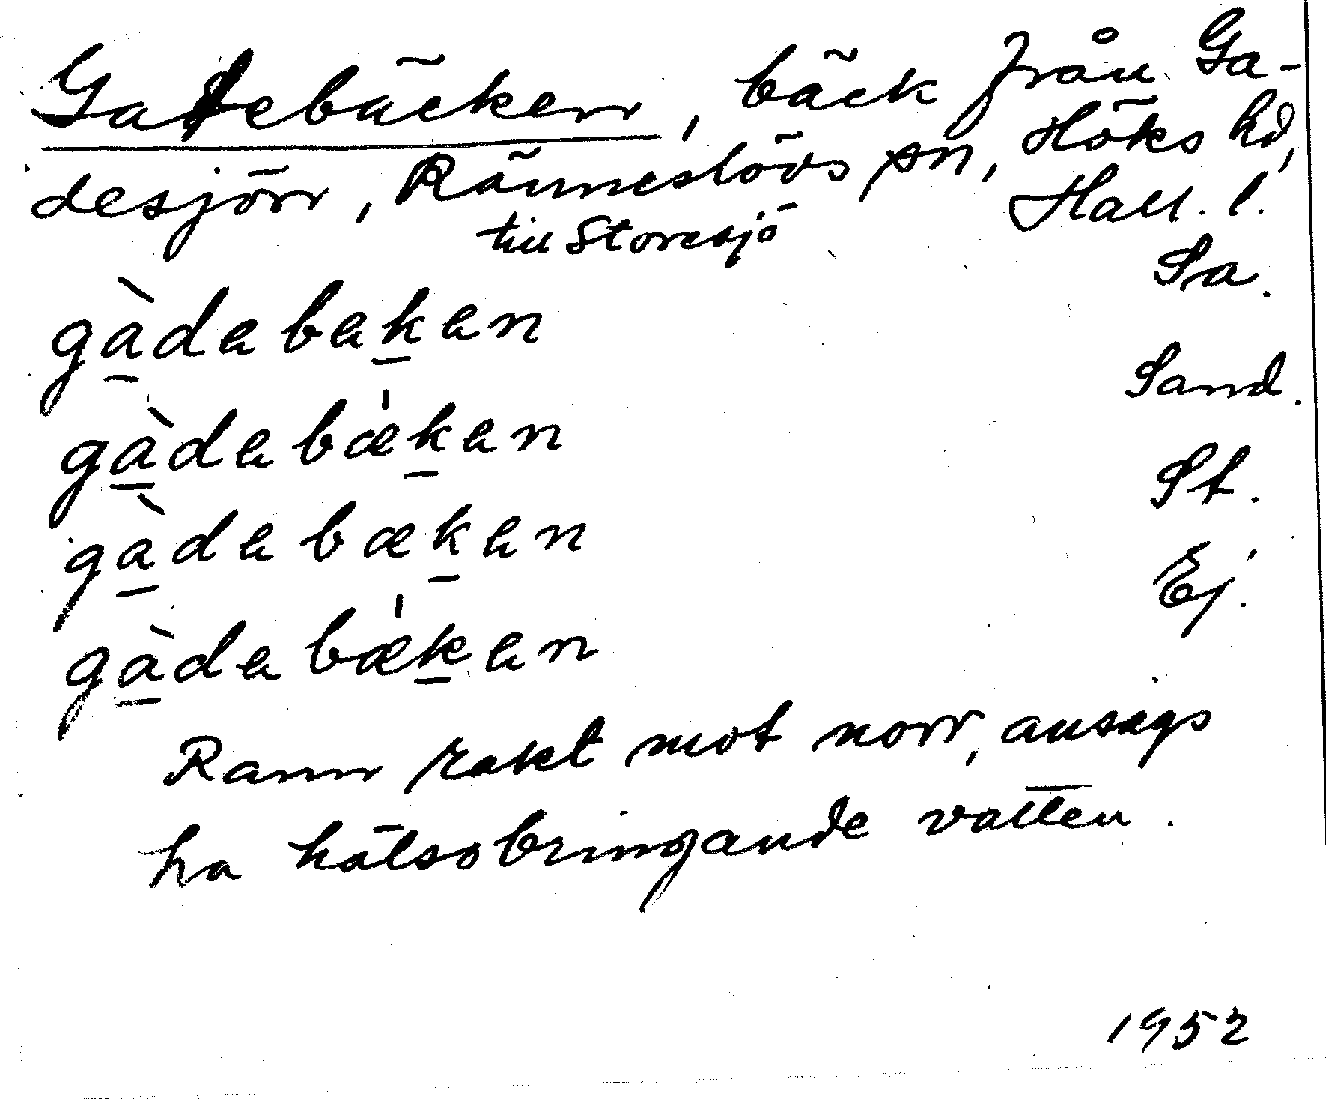 Gadebäcken, bäck från Ga-
desjön, Ränneslövs sn, Höks hd,
till Storesjö Hall. l.
gàdabakan Sa.
gàdabækan Sand.
gàdabækan St.
gàdabækan Ej.
Rann rakt mot norr, ansågs
ha hälsobringande vatten.
1952